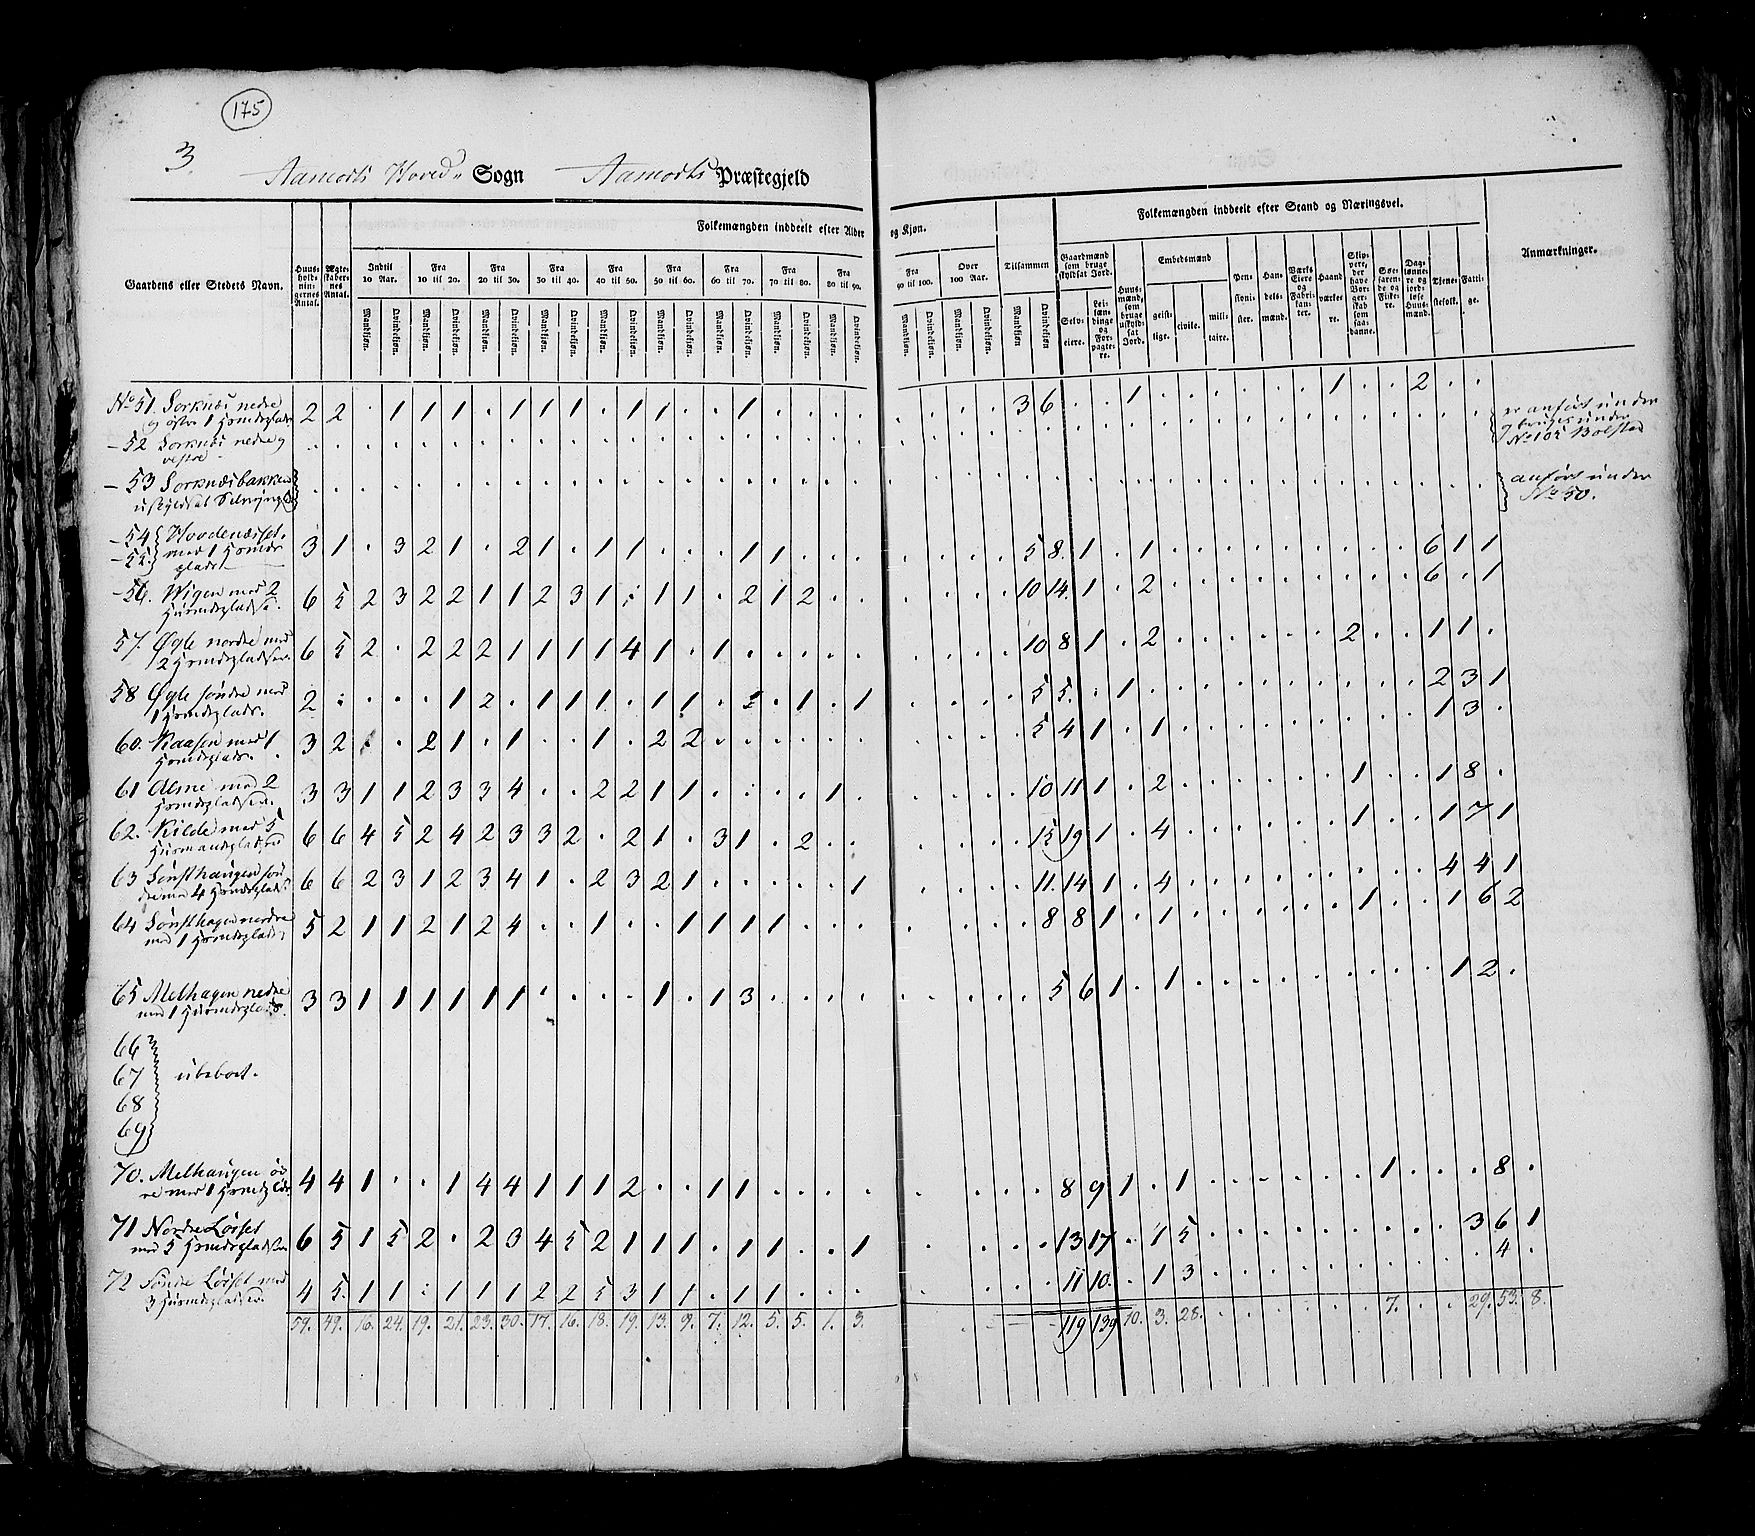 175
3.
Aamodts Hoved- Sogn Aamodts Præstegjeld
Folkemængden inddeelt efter Alder og Kjøn.
Folkemængden inddeelt efter Stand og Næringsvei.
Gaardens eller Stedets Navn.
Huusholdningernes Antal.
Ægteskabernes Antal.
Indtil 10 Aar.
Fra 10 til 20.
Fra 20 til 30.
Fra 30 til 40.
Fra 40 til 50.
Fra 50 til 60.
Fra 60 til 70.
Fra 70 til 80.
Fra 80 til 90.
Fra 90 til 100.
Over 100 Aar.
Tilsammen
Mandkjøn. Qvindekjøn.
Gaardmænd som bruge skyldsat Jord.
Selveiere.
Leilændinge og Forpagtere.
Huusmænd, som bruge uskyldsat Jord.
Embedsmænd
geistlige. civile. militaire.
Pensionister.
Handelsmænd.
Værks Eiere og Fabrikanter.
Haandværkere.
Skippere, der have Borgerskab som saadanne.
Søefarende og Fiskere.
Daglønnere og jordløse Huusmænd.
Tjenestefolk.
Fattige.
Anmærkninger.
No 51. Sorknæs nedre
og østre 1 2 2 . 1 1 1 . 1 1 1 . 1 1 . . 1 . . . . 3 6 . . 1 . . . . . . 1 . . 2 . .
er anført under
bruges under
No 102 Bolstad
- 52 Sorknæs nedre og
vestre
- 53 Sorknæsbakken
anført under
No 50.
- 54
- 55. med 1 3 1 . 3 2 1 . 2 1 . 1 1 . . . 1 1 . . . 5 8. 1 . 1 . . . . . . . . . 6 1 1
- 56. Wigen med 2 6 5 2 3 2 2 1 1 2 3 1 . 1 1 . 2 1 2 . . 10 14. 1 . 2 . . . . . . . . . 6 . 1
57. Øgle nordre med
2 6 5 2 . 2 2 2 1 1 1 1 4 1 . 1 . . . . . 10 8 1 . 2 . . . . . . 2 . . 1 1 .
58 Øgle søndre med
1 2 . . . . 1 2 . 1 1 1 . 1 1 . . 1 . 1 5 5. . 1 . . . . . . . . . . 2 3 1
60. Kaasen med 1 3 2 . . 2 1 . 1 . . 1 . 2 2 . . . . . . 5 4 1 . 1 . . . . . . . . . 1 3 .
61 Alme med 2 3 3 1 1 2 3 3 4 . . 2 2 1 1 . . . . 1 . 10 11 1 . 2 . . . . . . 1 . . 1 8 .
62. Kilde med 5
6 6 4 5 2 4 2 3 3 2 . 2 1 . 3 1 . 2 . . 15 19 1 . 4 . . . . . . 1 . . 1 7 1
63 Lønsthaugen søn
dre med 4 6 6 2 3 1 2 3 4 1 . 2 3 2 1 . . . . . 1 11. 14 1 . 4 . . . . . . . . . 4 4 1
64 Lønsthagen nordre
med 1 5 2 1 1 2 1 2 4 . . 1 . . 1 1 1 1 . . . 8 8 1 . 1 . . . . . . 1 . . 1 6 2
65 Melhagen nedre
med 1 3 3 1 1 1 1 1 1 . . . . 1 . 1 3 . . . . 5 6 1 . 1 . . . . . . . . . 1 2 .
66
67 ubeboet.
68
69
70. Melhaugen øv
re med 1 4 4 1 . . 1 4 4 1 1 1 2 . . 1 1 . . . . 8 9 1 . 1 . . . . . . 1 . . . 8 .
71 Nordre Løsset
med 5 6 5 1 5 2 . 2 3 4 5 2 1 1 1 . 1 1 . . 1 13 17 . 1 5 . . . . . . . . . 3 6 1
72 Søndre Løsset med
3 4 5 1 1 . 1 1 1 2 2 5 3 1 1 . 1 1 . . . 11 10. . 1 3 . . . . . . . . . . 4 .
59. 49. 16. 24. 19. 21. 23. 30. 17. 16. 18. 19. 13. 9. 7. 12. 5. 5. 1. 3. 119 139 10. 3. 28. . . . . . . 7. . . 29. 53. 8.